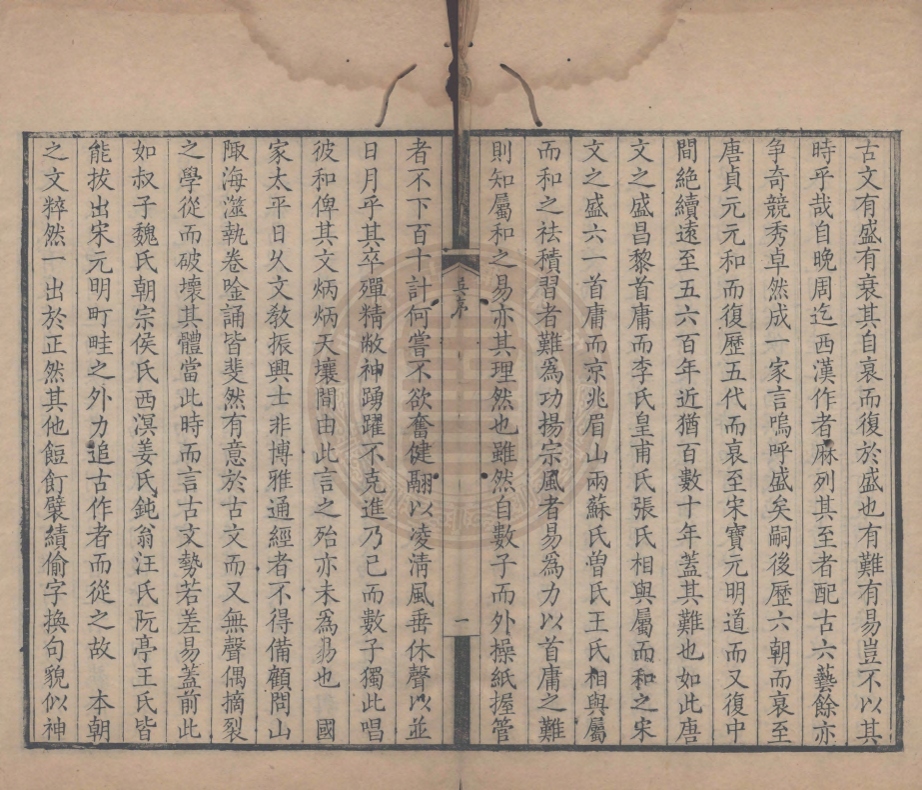 古文有盛有衰其自衰而復於盛也有難有易豈不以其
時乎哉自晚周迄西漢作者麻列其至者配古六藝餘亦
争奇競秀卓然成一家言嗚呼盛矣嗣後歷六朝而衰至
唐貞元元和而復歷五代而衰至宋寶元明道而又復中
間絶續遠至五六百年近猶百數十年蓋其難也如此唐
文之盛昌黎首庸而李氏皇甫氏張氏相與屬而和之宋
文之盛六一首庸而京兆眉山兩蘇氏曾氏王氏相與屬
而和之祛積習者難爲功揚宗風者易爲力以首庸之難
則知屬和之易亦其理然也雖然自數子而外操紙握管
序
一
者不下百十計何嘗不欲奮健翮以凌淸風垂休聲以並
日月乎其卒殫精敝神踴躍不克進乃已而數子獨此唱
彼和俾其文炳炳天壤間由此言之殆亦未爲易也 國
家太平日久文敎振興士非博雅通經者不得備顧問山
陬海澨執卷唫誦皆斐然有意於古文而又無聲偶摘裂
之學從而破壞其體當此時而言古文勢若差易蓋前此
如叔子魏氏朝宗侯氏西溟姜氏鈍翁汪氏阮亭王氏皆
能拔出宋元明町畦之外力追古作者而從之故 本朝
之文粹然一出於正然其他餖飣襞績偷字換句貌似神